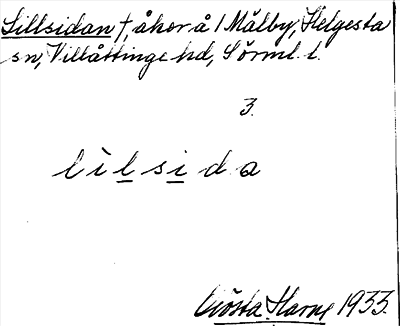 Lillsidan †, åker å 1 Målby, Helgesta
sn, Villåttinge hd, Sörml. l.
3.
lìlsida
Gösta Harne 1933.